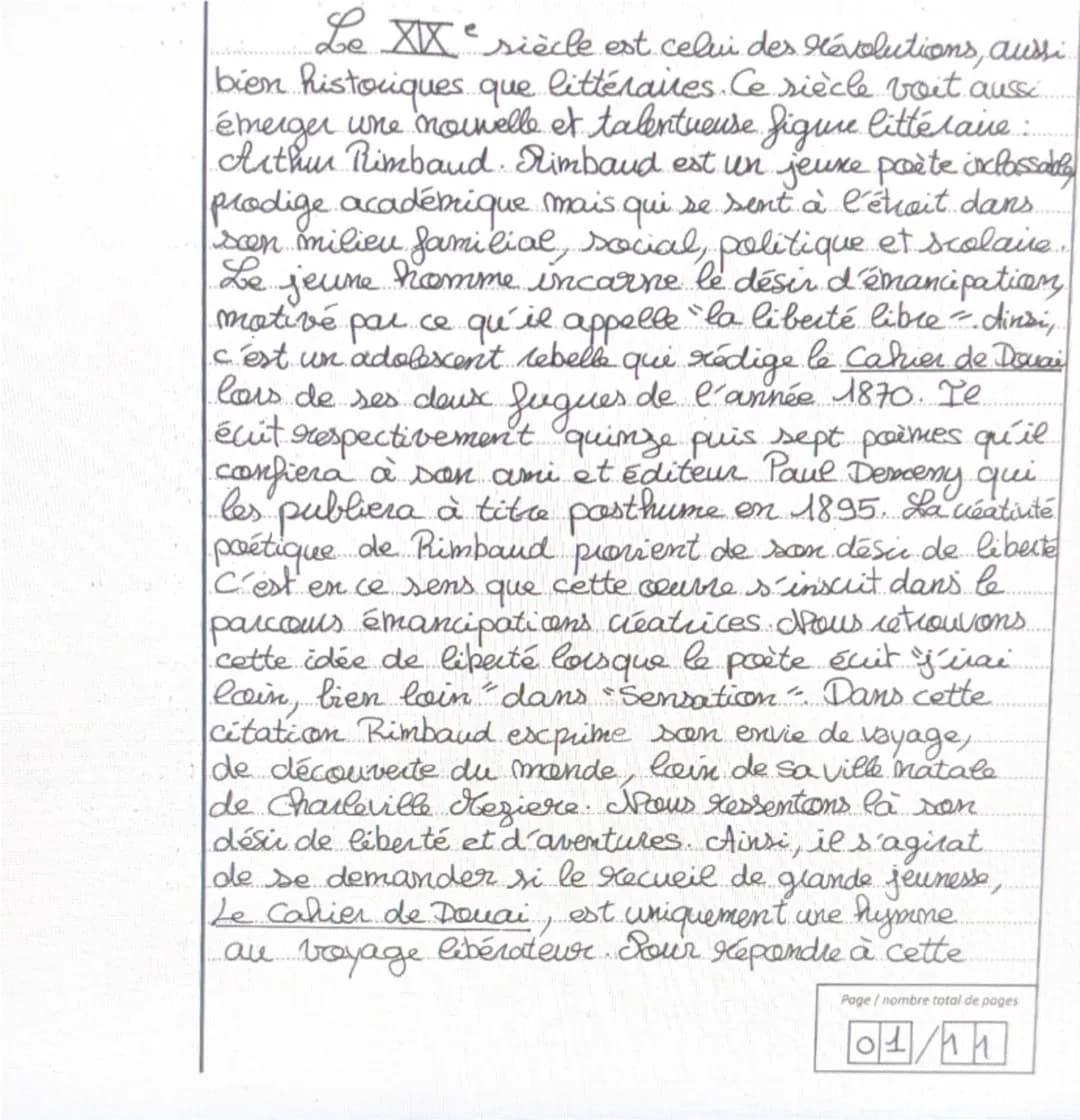 Le XIXe siècle est celui des révolutions, aussi
bien historiques que littéraires. Ce siècle voit aussi
émerger une nouvelle et talentueuse figure littéraire :
Arthur Rimbaud. Rimbaud est un jeune poète inclassable,
prodige académique mais qui se sent à l'étroit dans
son milieu familial, social, politique et scolaire.
Le jeune homme incarne le désir d'émancipation,
motivé par ce qu'il appelle "la liberté libre". Ainsi,
c'est un adolescent rebelle qui rédige le Cahier de Douai
lors de ses deux fugues de l'année 1870. Il
écrit respectivement quinze puis sept poèmes qu'il
confiera à son ami et éditeur Paul Demeny qui
les publiera à titre posthume en 1895. La créativité
poétique de Rimbaud provient de son désir de liberté
C'est en ce sens que cette oeuvre s'inscrit dans le
parcours émancipations créatrices. Nous retrouvons
cette idée de liberté lorsque le poète écrit "j'irai
loin, bien loin" dans "Sensation". Dans cette
citation Rimbaud exprime son envie de voyage,
de découverte du monde, loin de sa ville natale
de Charleville Meziere. Nous ressentons là son
désir de liberté et d'aventures. Ainsi, il s'agirat
de se demander si le recueil de grande jeunesse,
Le Cahier de Douai, est uniquement une hymne
au voyage libérateur. Pour répondre à cette
Page / nombre total de pages
01/11